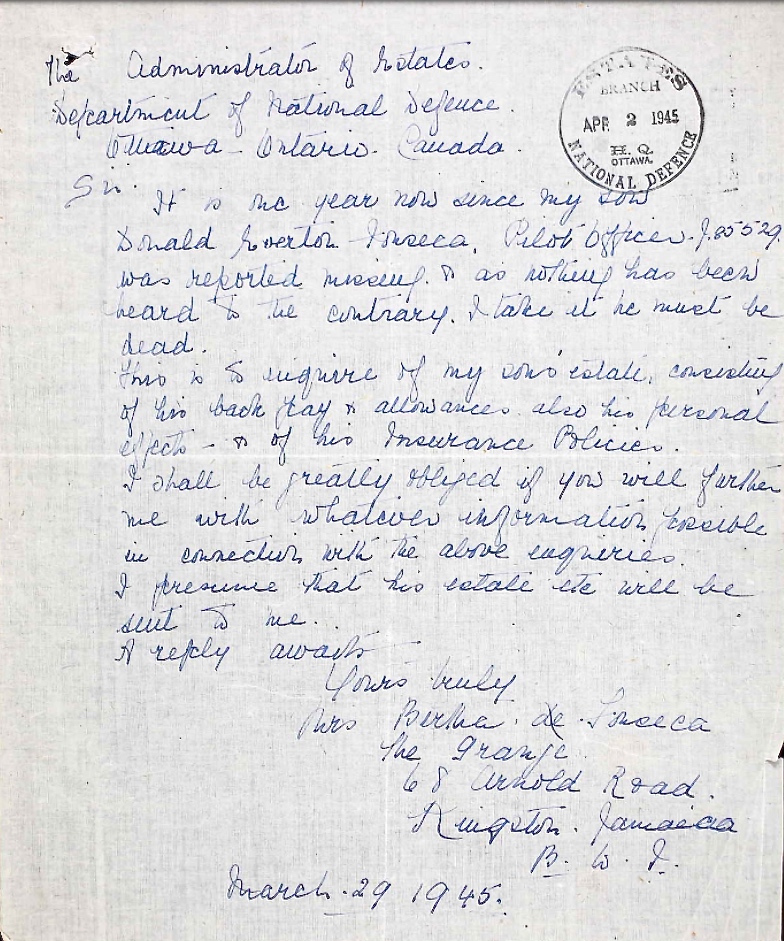 The Administrator of Estates.
Department of National Defence.
Ottawa - Ontario. Canada.
ESTATES
BRANCH
APR 2 1945
H. Q.
OTTAWA.
NATIONAL DEFENCE
Sir.
It is one year now since my son
Donald Everton Fonseca, Pilot Officer. J.85529
was reported missing. & as nothing has been
heard to the contrary. I take it he must be
dead.
This is to enquire of my son's estate, consisting
of his back pay & allowances also his personal
effects - & of his Insurance Policies.
I shall be greatly obliged if you will further
me with whatever information possible
in connection with the above enqueries.
I presume that his estate etc will be
sent to me.
A reply awaits
Yours truly
Mrs Bertha de Fonseca
The Grange
68 Arnold Road.
Kingston. Jamaica
B. W. I.
March. 29 1945.